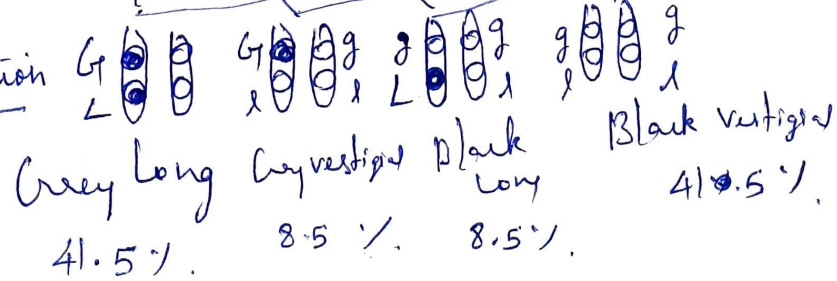 ion G G g g g g g
L l l L l l l
Grey Long Grey vestigial Black Long Black Vestigial
41.5 %. 8.5 %. 8.5 %. 41.5 %